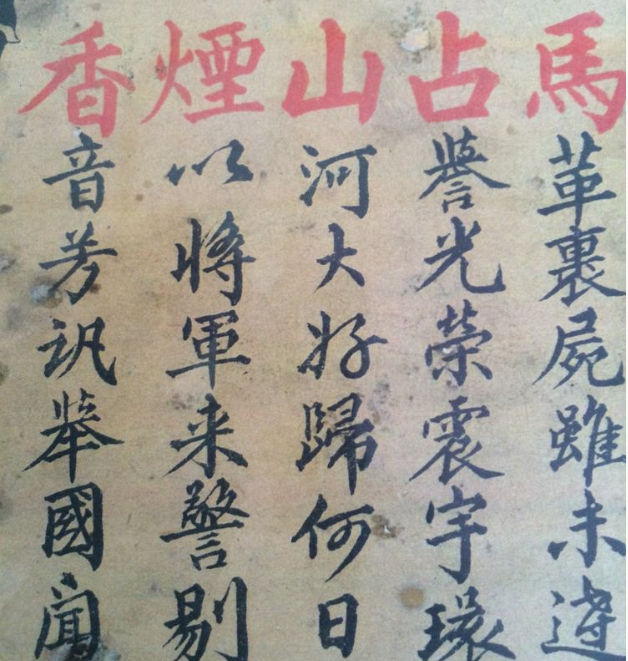 馬革裹屍雖未
占譽光榮震宇環
山河大好歸何日
煙以將軍来警剔
香音芳訊舉國聞